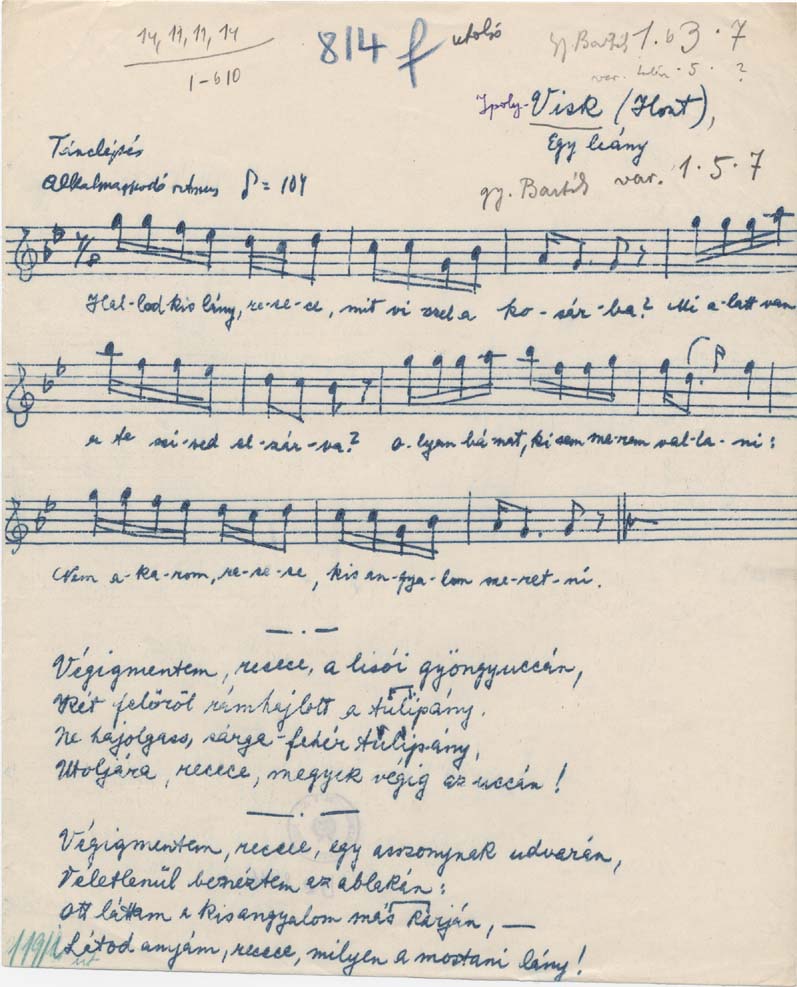 14, 11, 11, 14
1-b10
814 f utolsó
gy. Bartók 1. b3. 7
var. 5. ?
Ipoly-Visk (Hont),
Egy leány
gy. Bartók var. 1. 5. 7
Tánclépés
Alkalmazkodó ritmus ♪ = 104
7/8
Hal-lod kis lány, re-se-ce, mit vi szel a ko-sár-ba? Mi a-latt van
e te szí-ved el-zár-va? O-lyan bá-nat, ki sem me-rem val-la-ni:
Nem a-ka-rom, re-se-ce, kis an-gya-lom sze-ret-ni.
Végigmentem, recece, a lisói gyöngyuccán,
Két felőről rámhajlott a tulipány.
Ne hajolgass, sárga-fehér tulipány,
Utoljára, recece, megyek végig az uccán!
Végigmentem, recece, egy asszonynak udvarán,
Véletlenül benéztem az ablakán:
Ott láttam a kisangyalom más karján, —
Látod anyám, recece, milyen a mostani lány!